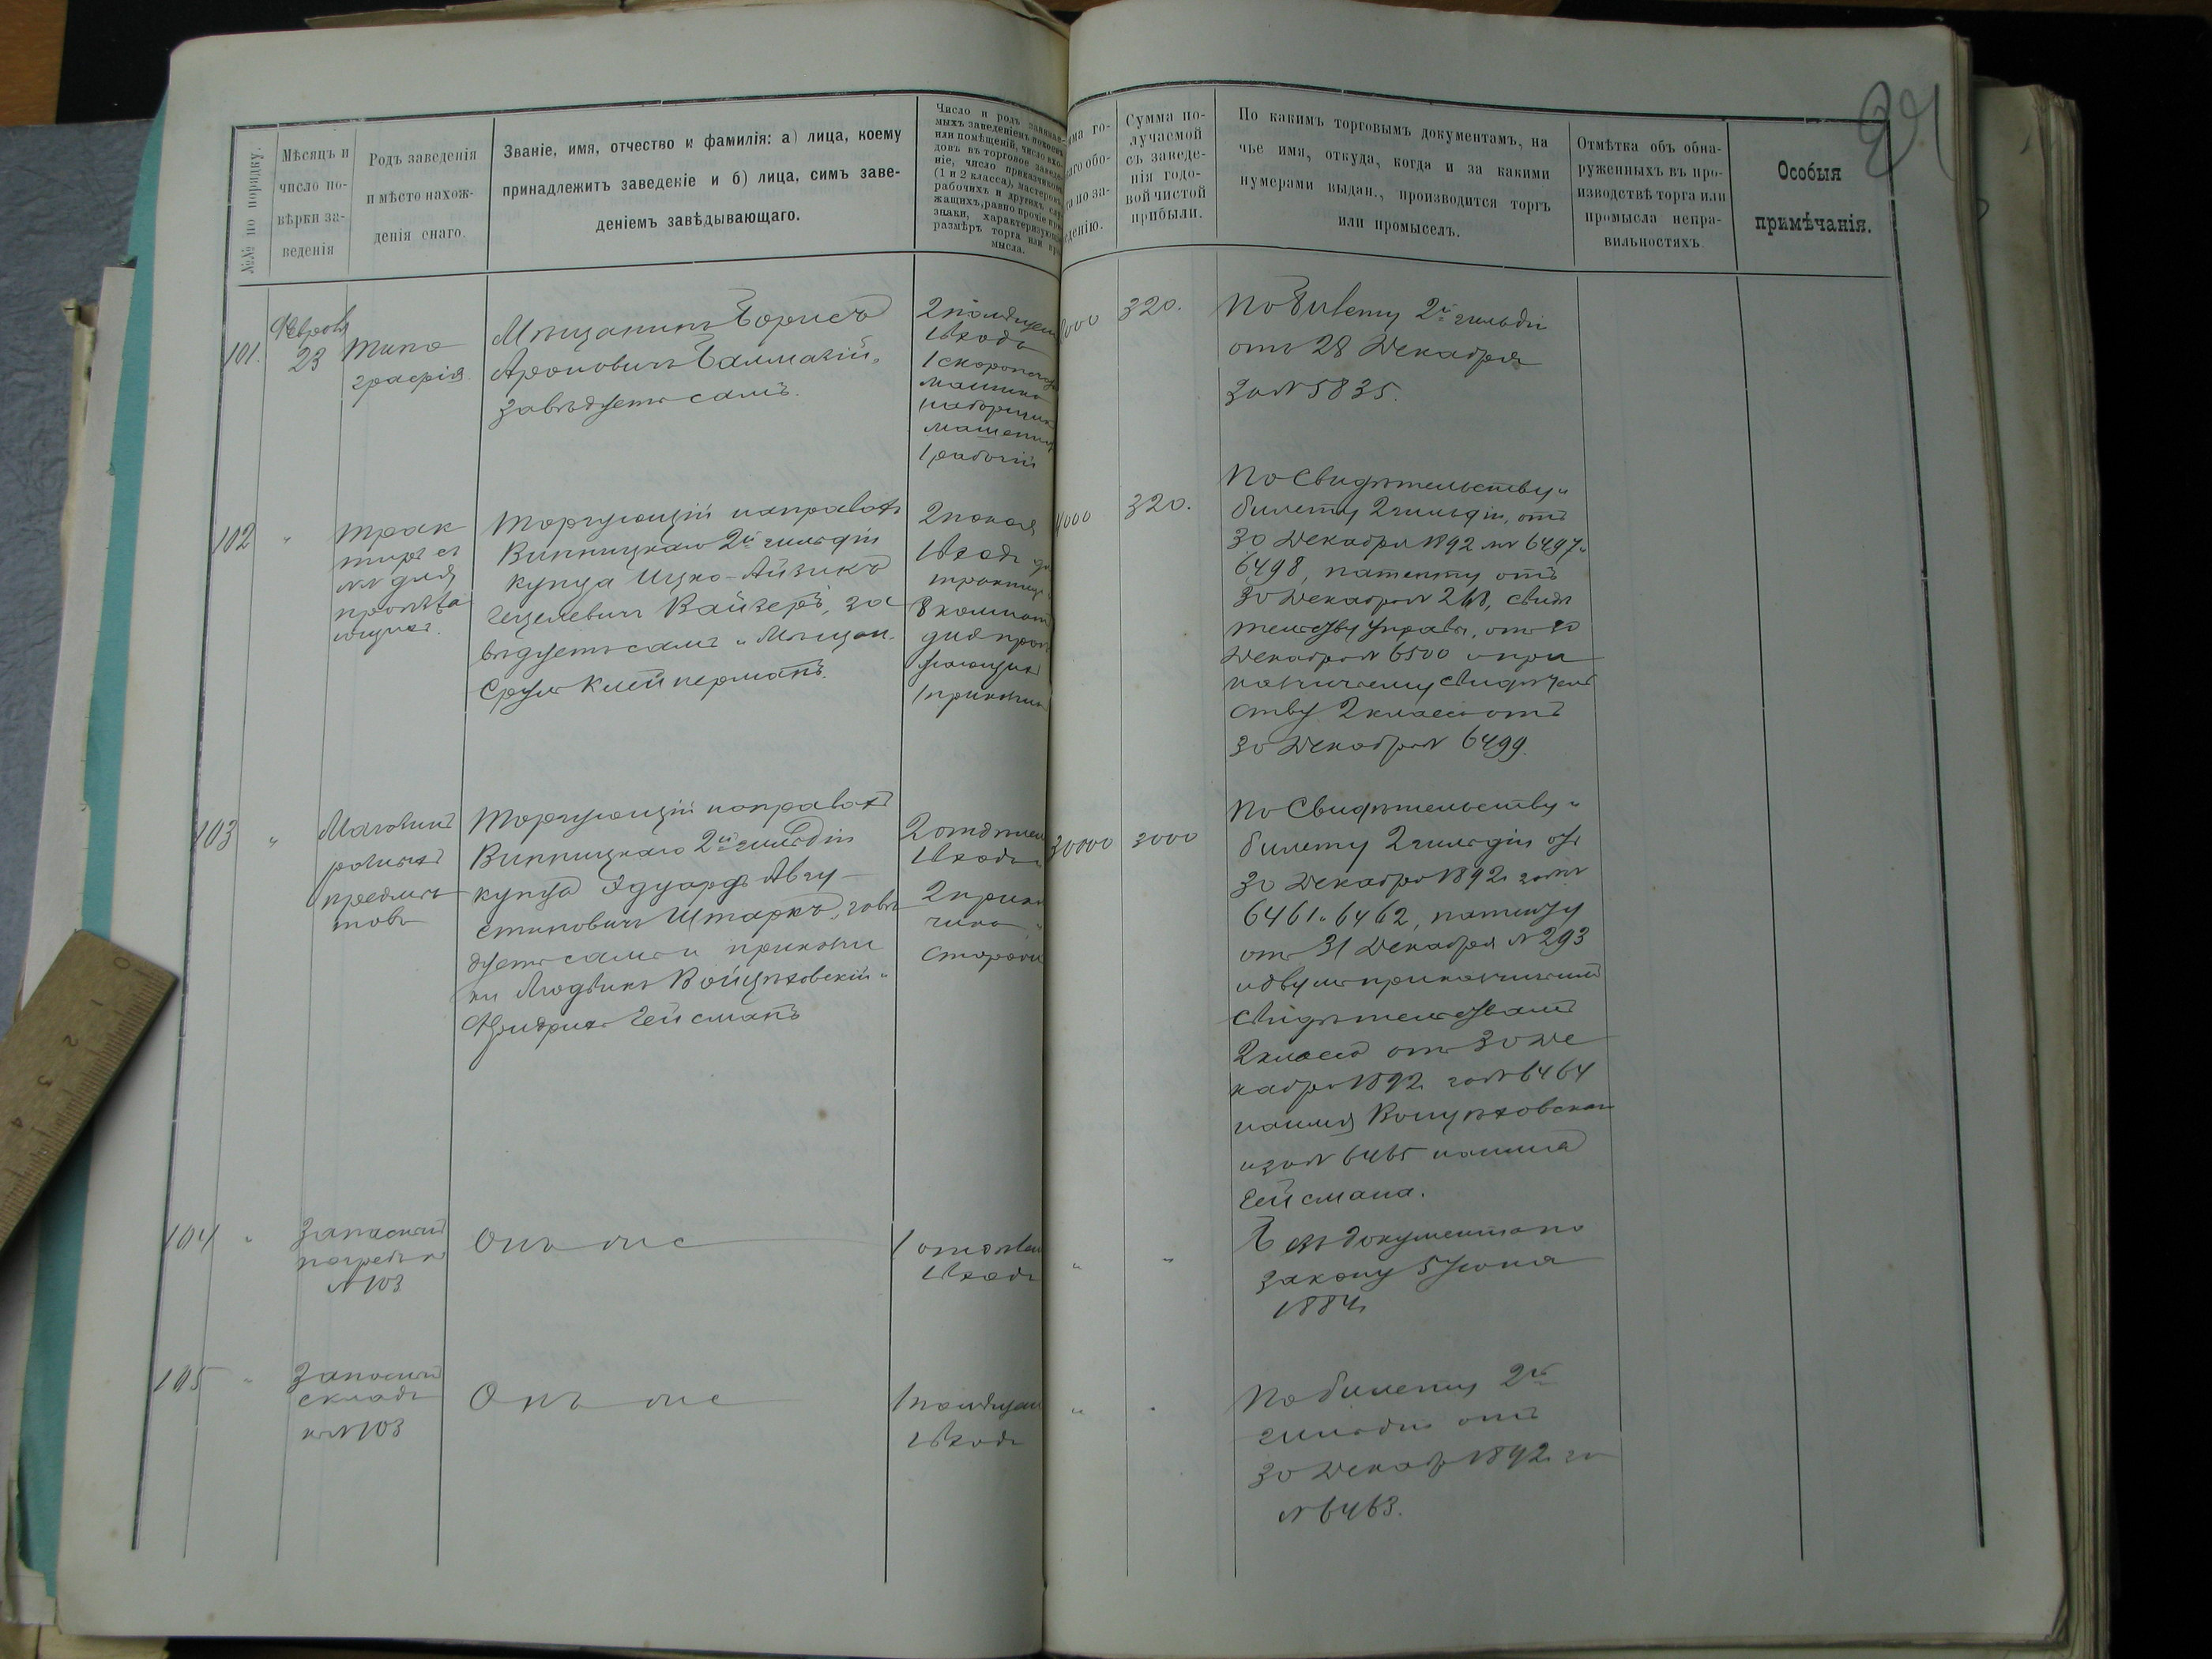 №№ по порядку.
Мѣсяцъ и
число по-
вѣрки за-
веденія
Родъ заведенія
и мѣсто нахож-
денія онаго.
Званіе, имя, отчество и фамилія: а) лица, коему
принадлежитъ заведеніе и б) лица, симъ заве-
деніемъ завѣдывающаго.
Число и родъ занимае-
мыхъ заведеніемъ покоевъ
или помѣщеній, число вхо-
довъ въ торговое заведе-
ніе, число приказчиковъ
(1 и 2 класса), мастеровъ,
рабочихъ и другихъ слу-
жащихъ, равно прочіе при-
знаки, характеризующіе
размѣръ торга или про-
мысла.
ма го-
аго обо-
та по за-
еденію.
Сумма по-
лучаемой
съ заведе-
нія годо-
вой чистой
прибыли.
По какимъ торговымъ документамъ, на
чье имя, откуда, когда и за какими
нумерами выдан., производится торгъ
или промыселъ.
Отмѣтка объ обна-
руженныхъ въ про-
изводствѣ торга или
промысла непра-
вильностяхъ.
Особыя
примѣчанія.
101.
Февраля
23
Типо
графія
Мѣщанинъ Борисъ
Ароновичъ
завѣдуетъ самъ.
2 помѣщен
1 входъ
1 скоропеч
машина
1 рабочій
320.
По билету 2й гильдіи
отъ 28 Декабря
за № 5835.
102
"
Трак
тиръ съ
№№ для
Торгующій на правахъ
Винницкаго 2й гильдіи
купца Ицко-Айзикъ
Гецелевичъ Вайзеръ, за
вѣдуетъ самъ и Мѣщан.
Сруль Клейнерманъ.
2 покоя
1 входъ
8 комнат
для про
320.
По Свидѣтельству и
билету 2 гильдіи, отъ
30 Декабря 1892 №№ 6497 и
6498, патенту отъ
30 Декабря № 268, свидѣ
тельству управы, отъ 30
Декабря № 6500 и при
казчичьему свидѣтель
ству 2 класса отъ
30 Декабря № 6499.
103
"
Магазинъ
разныхъ
предме
товъ
Торгующій на правахъ
Винницкаго 2й гильдіи
купца Эдуардъ Авгу-
стиновичъ Штаркъ, завѣ
дуетъ самъ и приказчи
ки Людвикъ Войцѣховскій и
Фридрихъ Гейсманъ
2 отдѣлен
1 входъ и
2 прика
чика и
сторож
30000
3000
По Свидѣтельству и
билету 2 гильдіи отъ
30 Декабря 1892 за №№
6461 и 6462, патенту
отъ 31 Декабря № 293
и двумъ приказчичьимъ
свидѣтельствамъ
2 класса отъ 30 Де
кабря 1892 за № 6464
на имя Войцѣховскаго
и за № 6465 на имя
Гейсмана.
104
"
Запасный
погребъ къ
№ 103
Онъ же
1 отдѣлен
1 входъ
"
"
Безъ документа по
закону 5 Іюня
1884 г.
105
"
Запасный
складъ
къ № 103
Онъ же
1 помѣщен
1 входъ
"
"
По билету 2й
гильдіи отъ
30 Декабр 1892 за
№ 6463.